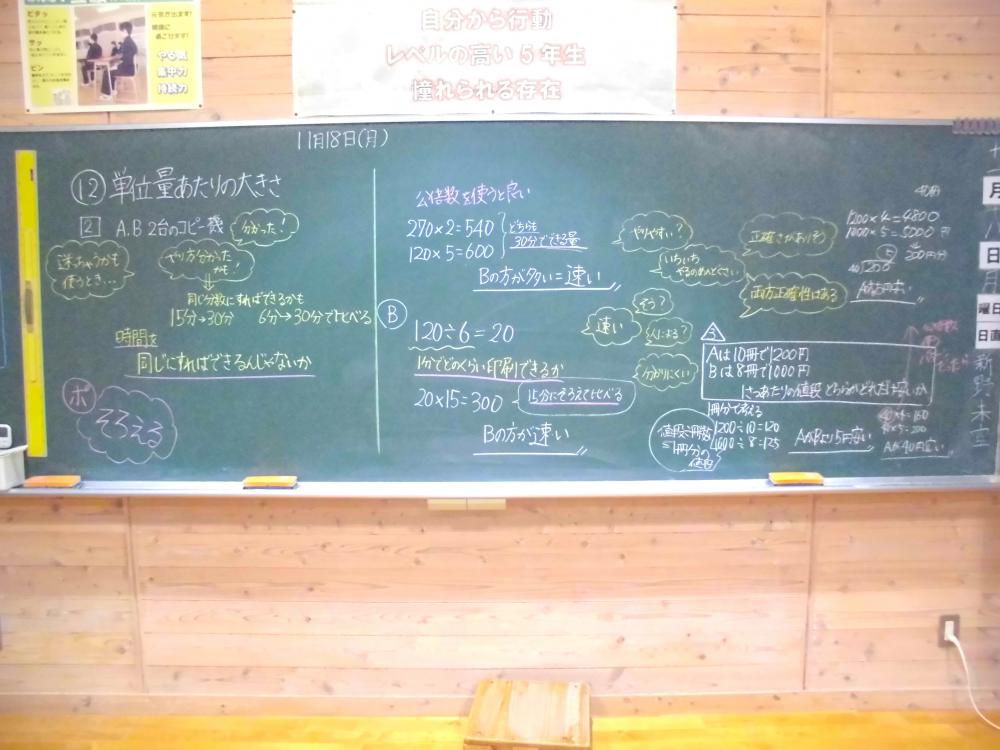 自分から行動
レベルの高い5年生
憧れられる存在
ピタッ
サッ
ピン
元気が出ます!
やる気
集中力
持続力
11月18日(月)
⑫ 単位量あたりの大きさ
2 A,B 2台のコピー機
分かった!
迷っちゃうかも
使うとき…
やり方分かった
かも!
同じ分数にすればできるかも
15分→30分 6分→30分で比べる
時間を
同じにすればできるんじゃないか
ポ
そろえる
公倍数を使うと良い
270×2=540
120×5=600
どちらも
30分でできる量
Bの方が多い=速い
B
120÷6=20
1分でどのくらい印刷できるか
20×15=300
15分にそろえて比べる
Bの方が速い
やりやすい?
いちいち
やるのめんどくさい
正確さがありそう
両方正確性はある
速い
そう?
人による?
分かりにくい
1200×4=4800
1000×5=5000円
3
Aは10冊で1200円
Bは8冊で1000円
1さつあたりの値段 どちらがどれだけ安いか
1冊分で考える
1200÷10=120
1000÷8=125
値段÷冊数
=1冊分の
値段
AがBより5円安い
Aが40円安い
月
日
曜日
日直